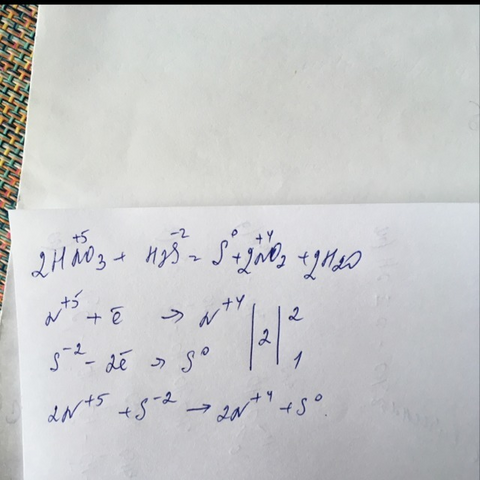 2HN⁺⁵O₃ + H₂S⁻² = S⁰ + 2N⁺⁴O₂ + 2H₂O
N⁺⁵ + ē → N⁺⁴ | 2 | 2
S⁻² - 2ē → S⁰ | | 1
2N⁺⁵ + S⁻² → 2N⁺⁴ + S⁰.